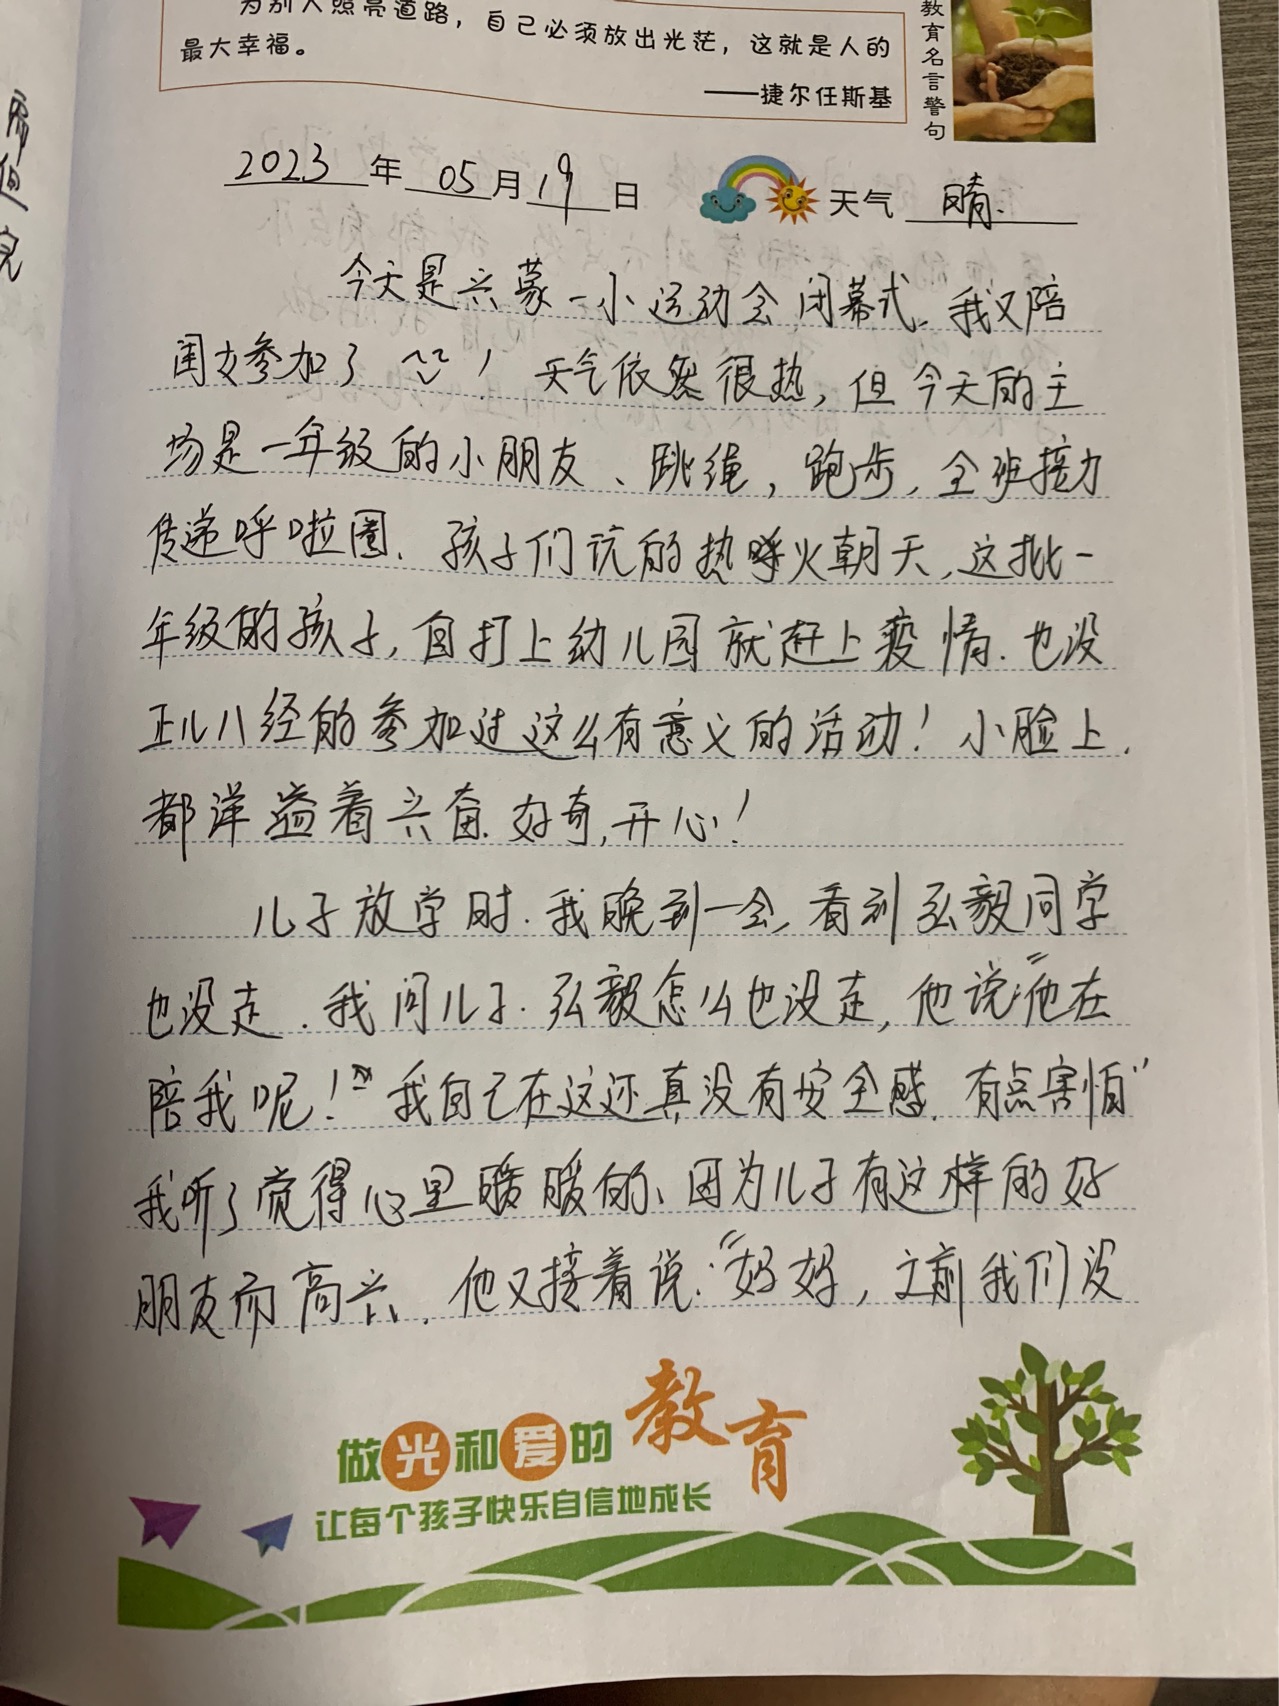 为别人照亮道路，自己必须放出光茫，这就是人的
最大幸福。
——捷尔任斯基
教育名言警句
2023年05月19日 天气 晴.
今天是兴蒙一小运动会闭幕式、我又陪
闺女参加了！天气依然很热，但今天的主
场是一年级的小朋友、跳绳，跑步，全班接力
传递呼啦圈、孩子们玩的热呼火朝天,这批一
年级的孩子,自打上幼儿园就赶上疫情.也没
正儿八经的参加过这么有意义的活动！小脸上
都洋溢着兴奋、好奇,开心！
儿子放学时.我晚到一会,看到弘毅同学
也没走.我问儿子.弘毅怎么也没走,他说:“他在
陪我呢！”我自己在这还真没有安全感.有点害怕”
我听了觉得心里暖暖的、因为儿子有这样的好
朋友而高兴.他又接着说:“妈妈，之前我们没
做光和爱的教育
让每个孩子快乐自信地成长